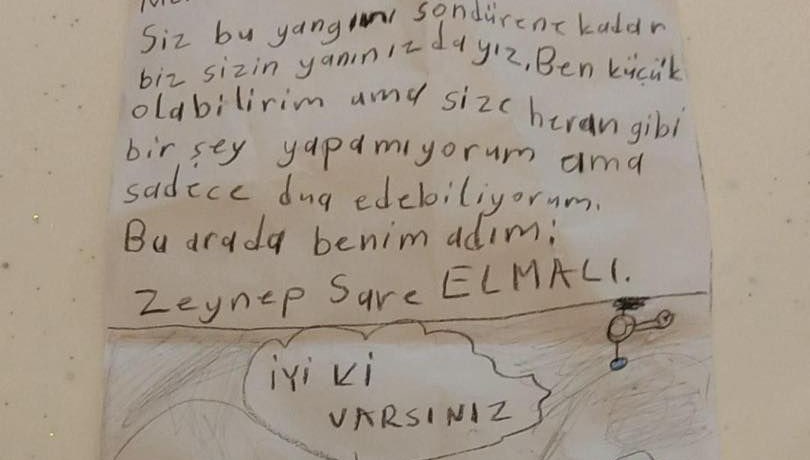 Siz bu yangını söndürene kadar
biz sizin yanınızdayız, Ben küçük
olabilirim ama size heran gibi
bir şey yapamıyorum ama
sadece dua edebiliyorum.
Bu arada benim adım:
Zeynep Sare ELMALI.
iyi ki
VARSINIZ